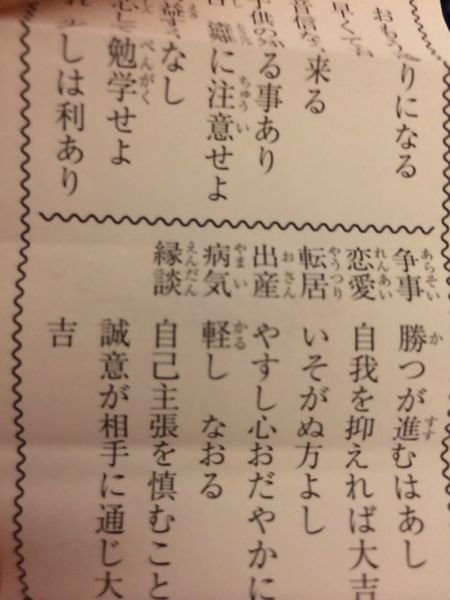 おもう りになる
早くて
音信 来る
子供の る事あり
に注意せよ
なし
勉学せよ
しは利あり
争事 勝つが進むはあし
恋愛 自我を抑えれば大吉
転居 いそがぬ方よし
出産 やすし心おだやかに
病気 軽し なおる
縁談 自己主張を慎むこと
誠意が相手に通じ大
吉